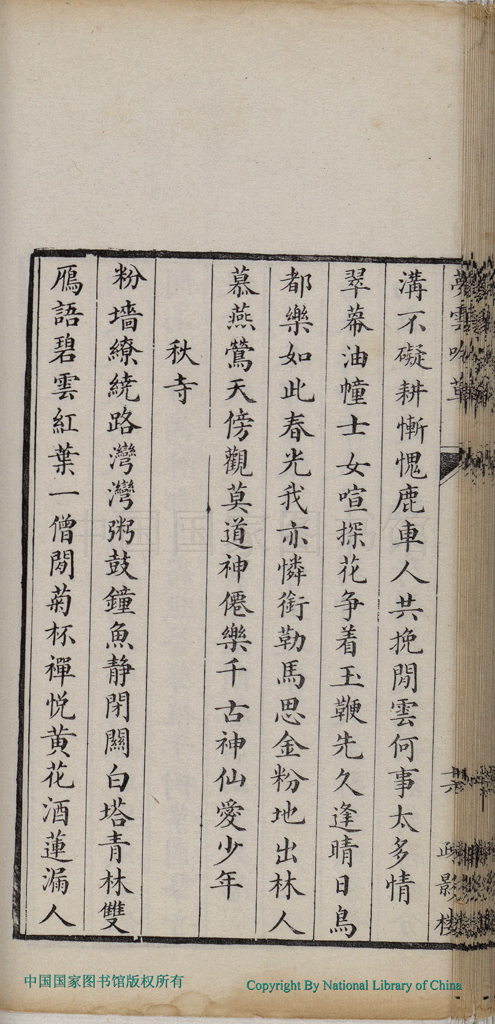 夢雲吟草
六
溝不礙耕慚愧鹿車人共挽閒雲何事太多情
翠幕油幢士女喧探花爭着玉鞭先久逢晴日鳥
都樂如此春光我亦憐銜勒馬思金粉地出林人
慕燕鶯天傍觀莫道神僊樂千古神仙愛少年
秋寺
粉墻繚繞路灣灣粥鼓鐘魚靜閉關白塔青林雙
鴈語碧雲紅葉一僧閒菊杯禪悅黄花酒蓮漏人
中国国家图书馆版权所有
Copyright By National Library of China